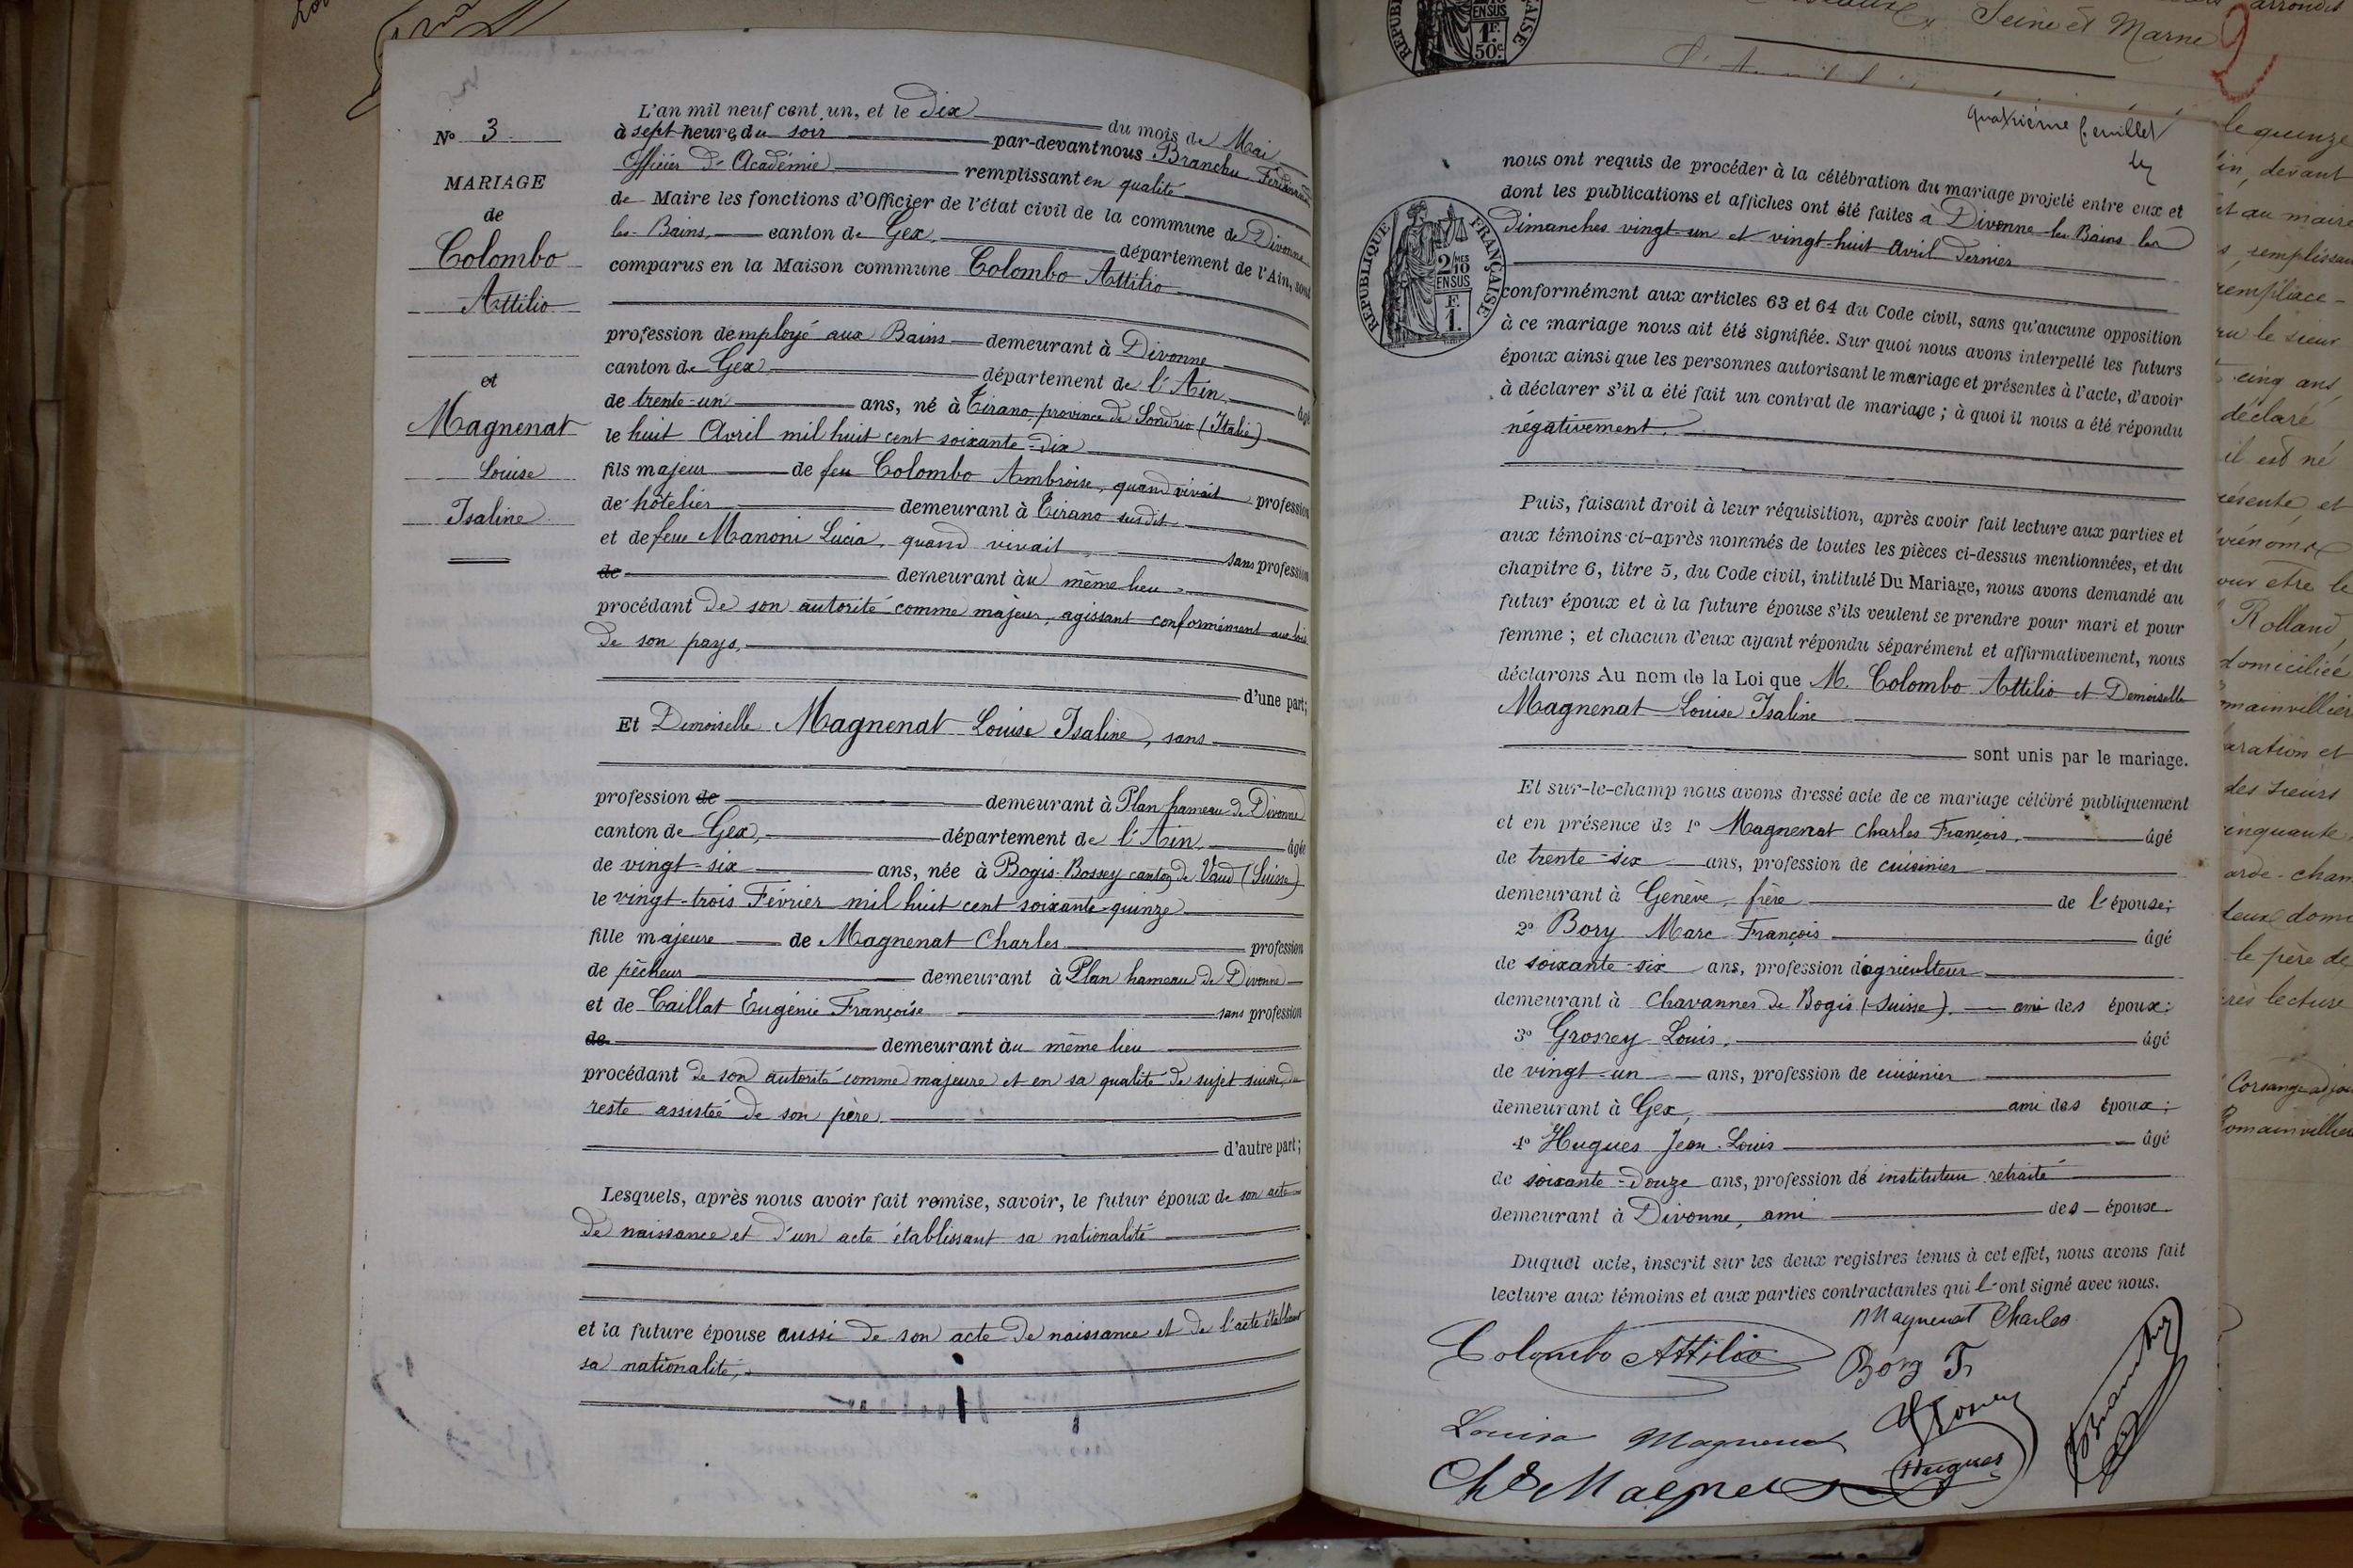 N° 3
MARIAGE
de
Colombo
Attilio
et
Magnenat
Louise
Isaline
L'an mil neuf cent un, et le dix du mois de Mai
à sept heures du soir par-devant nous Branchu Ferdinand
Officier d'Académie remplissant en qualité
de Maire les fonctions d'Officier de l'état civil de la commune de Divonne
les-Bains, canton de Gex, département de l'Ain, sont
comparus en la Maison commune Colombo Attilio
profession d'employé aux Bains demeurant à Divonne
canton de Gex, département de l'Ain, âgé
de trente-un ans, né à Tirano, province de Sondrio (Italie)
le huit Avril mil huit cent soixante-dix
fils majeur de feu Colombo Ambroise, quand vivait profession
de hôtelier demeurant à Tirano susdit
et de feue Manoni Lucia, quand vivait, sans profession
de demeurant au même lieu
procédant de son autorité comme majeur, agissant conformément aux lois
de son pays,
d'une part;
Et Demoiselle Magnenat Louise Isaline, sans
profession de demeurant à Plan hameau de Divonne
canton de Gex, département de l'Ain, âgée
de vingt-six ans, née à Bogis-Bossey canton de Vaud (Suisse)
le vingt-trois Février mil huit cent soixante-quinze
fille majeure de Magnenat Charles profession
de pêcheur demeurant à Plan hameau de Divonne
et de Caillat Eugénie Françoise sans profession
de demeurant au même lieu
procédant de son autorité comme majeure et en sa qualité de sujet suisse, du
reste assistée de son père.
d'autre part;
Lesquels, après nous avoir fait remise, savoir, le futur époux de son acte
de naissance et d'un acte établissant sa nationalité
et la future épouse aussi de son acte de naissance et de l'acte établissant
sa nationalité,
quatrième feuillet
RÉPUBLIQUE FRANÇAISE
2/10MES
EN SUS
F.
1.
nous ont requis de procéder à la célébration du mariage projeté entre eux et
dont les publications et affiches ont été faites à Divonne-les-Bains les
dimanches vingt-un et vingt-huit Avril dernier
conformément aux articles 63 et 64 du Code civil, sans qu'aucune opposition
à ce mariage nous ait été signifiée. Sur quoi nous avons interpellé les futurs
époux ainsi que les personnes autorisant le mariage et présentes à l'acte, d'avoir
à déclarer s'il a été fait un contrat de mariage; à quoi il nous a été répondu
négativement.
Puis, faisant droit à leur réquisition, après avoir fait lecture aux parties et
aux témoins ci-après nommés de toutes les pièces ci-dessus mentionnées, et du
chapitre 6, titre 5, du Code civil, intitulé Du Mariage, nous avons demandé au
futur époux et à la future épouse s'ils veulent se prendre pour mari et pour
femme; et chacun d'eux ayant répondu séparément et affirmativement, nous
déclarons Au nom de la Loi que M. Colombo Attilio et Demoiselle
Magnenat Louise Isaline
sont unis par le mariage.
Et sur-le-champ nous avons dressé acte de ce mariage célébré publiquement
et en présence de 1° Magnenat Charles François, âgé
de trente-six ans, profession de cuisinier
demeurant à Genève, frère de l'épouse;
2° Bory Marc François âgé
de soixante-six ans, profession d'agriculteur
demeurant à Chavannes de Bogis (Suisse). ami des époux;
3° Grosrey Louis, âgé
de vingt-un ans, profession de cuisinier
demeurant à Gex, ami des époux;
4° Hugues Jean-Louis âgé
de soixante-douze ans, profession de instituteur retraité
demeurant à Divonne, ami des époux.
Duquel acte, inscrit sur les deux registres tenus à cet effet, nous avons fait
lecture aux témoins et aux parties contractantes qui l'ont signé avec nous.
Magnenat Charles
Colombo Attilio
Bory Fr
Louisa Magnenat
Hugues
Branchu
RÉPUBLIQUE FRANÇAISE
EN SUS
1F.
50c.
Seine et Marne
2
le quinze
in, devant
et au maire
remplace-
cinq ans
déclaré
il est né
présente et
prénoms
pour être le
Rolland,
domiciliée
Romainvilliers
aration et
des sieurs
inquante
domi
le père de
rès lecture
Romainvilliers